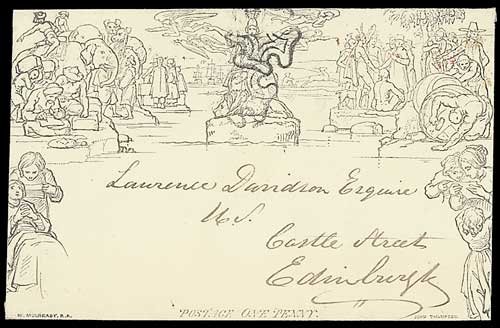 Lawrence Davidson Esquire
W.S.
Castle Street
Edinburgh
W. MULREADY, R.A.
POSTAGE ONE PENNY.
JOHN THOMPSON